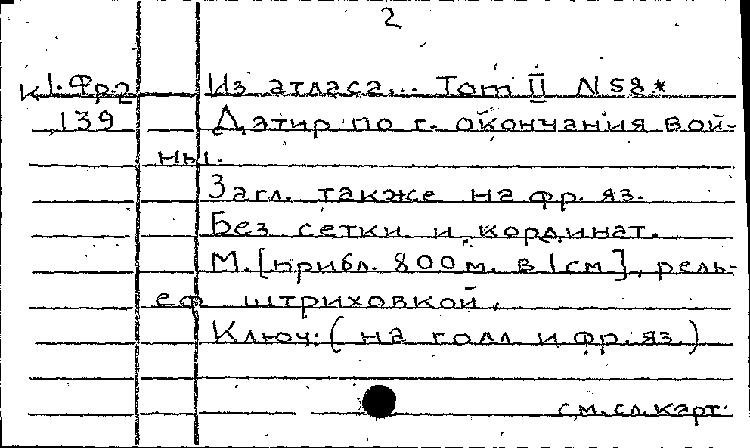 2
К 1-Фр2 Из атласа... Том II N58*
139 Датир по г. окончания вой-
ны.
Загл. также на фр. яз.
Без сетки и кординат.
М. [прибл. 800 м. в 1 см], рель-
еф штриховкой.
Ключ: ( на голл и фр. яз.)
см. сл. карт.